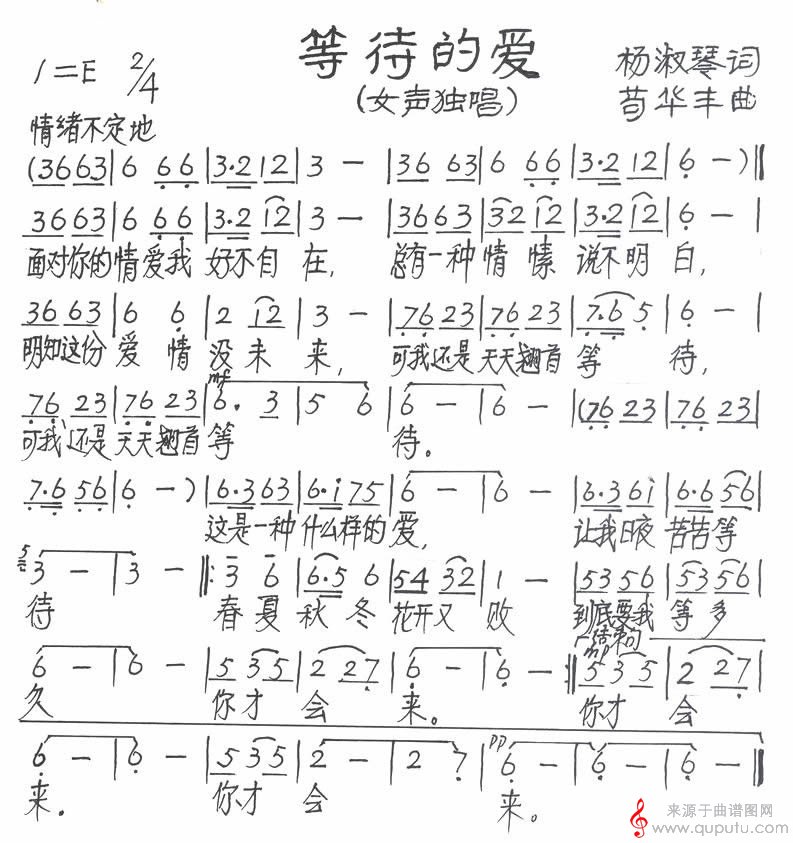 等待的爱
(女声独唱)
1=E 2/4
杨淑琴词
苟华丰曲
情绪不定地
(36 63 | 6 66 | 3·2 12 | 3 — | 36 63 | 6 66 | 3·2 12 | 6 — )‖
36 63 | 6 66 | 3·2 12 | 3 — | 36 63 | 32 12 | 3·2 12 | 6 — |
面对你的情爱我 好不自在, 总有一种情愫 说不明白,
36 63 | 6 6 | 2 12 | 3 — | 76 23 | 76 23 | 7·6 5 | 6 — |
明知这份爱情没未来, 可我还是天天翘首等待,
mf
76 23 | 76 23 | 6· 3 | 5 6 | 6 — | 6 — | (76 23 | 76 23 |
可我还是天天翘首等 待。
7·6 56 | 6 — ) | 6·3 63 | 6·i 75 | 6 — | 6 — | 6·3 6i | 6·6 56 |
这是一种什么样的爱, 让我日夜苦苦等
5 3 — | 3 — ‖: 3 6 | 6·5 6 | 54 32 | 1 — | 53 56 | 53 56 |
待 春夏秋冬花开又败 到底要我等多
结束句
mp
6 — | 6 — | 5 35 | 2 27 | 6 — | 6 — :‖ 5 35 | 2 27 |
久 你才会来。 你才会
pp
6 — | 6 — | 5 35 | 2 — | 2 7 | 6 — | 6 — | 6 — ‖
来。 你才会 来。
来源于曲谱图网
www.quputu.com